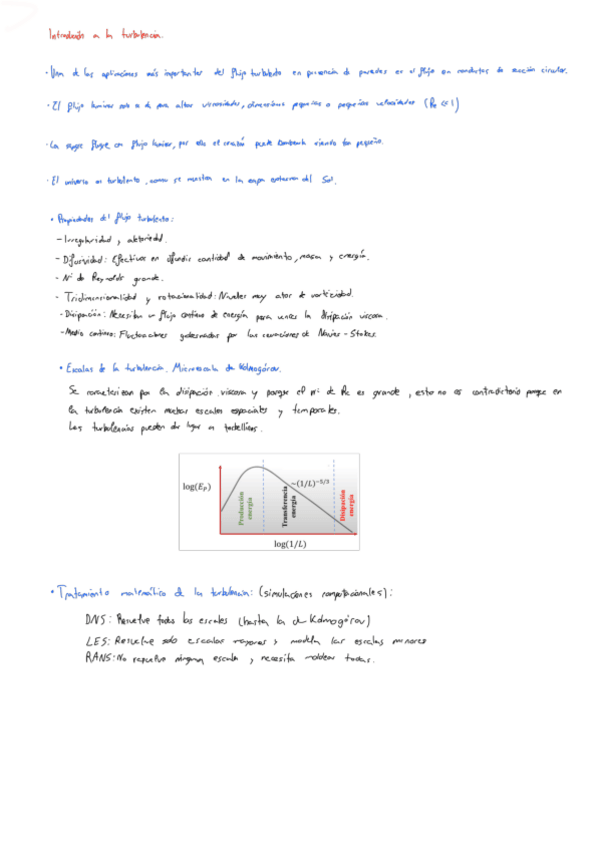 Introducción a la turbulencia.
· Una de las aplicaciones más importantes del flujo turbulento en presencia de paredes es el flujo en conductos de sección circular.
· El flujo laminar solo se da para altas viscosidades, dimensiones pequeñas o pequeñas velocidades (Re ≪ 1)
· La sangre fluye con flujo laminar, por ello el corazón puede bombearla siendo tan pequeño.
· El universo es turbulento, como se muestra en la capa exterior del Sol.
· Propiedades del flujo turbulento:
- Irregularidad y aleatoriedad.
- Difusividad: Efectivos en difundir cantidad de movimiento, masa y energía.
- Nº de Reynolds grande.
- Tridimensionalidad y rotacionalidad: Niveles muy altos de vorticidad.
- Disipación: Necesitan un flujo continuo de energía para vencer la disipación viscosa.
- Medio continuo: Fluctuaciones gobernadas por las ecuaciones de Navier-Stokes.
· Escalas de la turbulencia. Microescala de Kolmogórov.
Se caracterizan por la disipación viscosa y porque el nº de Re es grande, esto no es contradictorio porque en
la turbulencia existen muchas escalas espaciales y temporales.
Las turbulencias pueden dar lugar a torbellinos.
log(E_P)
~(1/L)^{-5/3}
Producción
energía
Transferencia
energía
Disipación
energía
log(1/L)
· Tratamiento matemático de la turbulencia: (simulaciones computacionales):
DNS: Resuelve todas las escalas (hasta la de Kolmogórov)
LES: Resuelve solo escalas mayores y modela las escalas menores
RANS: No resuelve ninguna escala y necesita moldear todas.